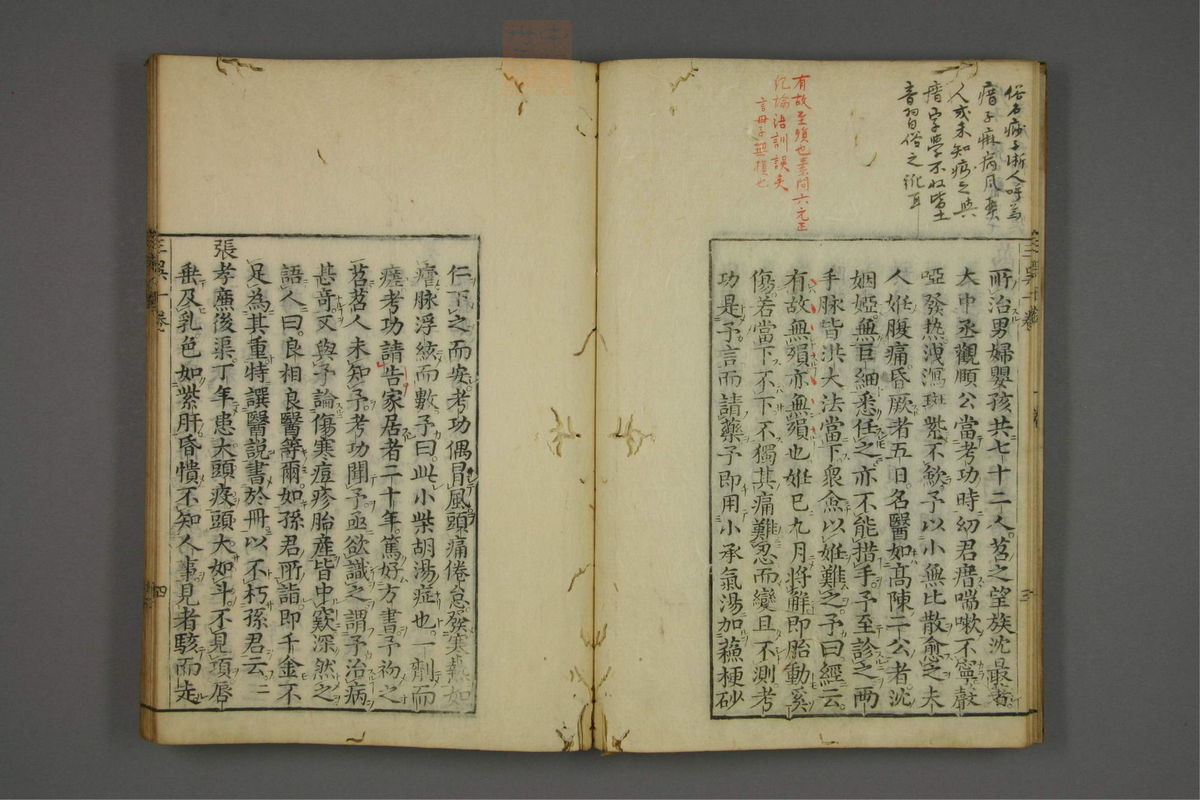 俗名痧子浙人呼為
瘄子麻病風奧
人或未知痧之與
瘄字學不収皆土
音習白俗之訛耳
有故無殞也素問六元正
紀論治訓誤矣
言母子無損也
所治男婦嬰孩共七十二人苕之望族沈最著
大中丞觀頤公當考功時幼君瘄喘嗽不寧聲
啞發热洩瀉斑紫不歛予以小無比散愈之夫
人姙腹痛昏厥者五日名醫如高陳二公者沈
姻婭無巨細悉任之亦不能措手予至診之兩
手脉皆洪大法當下衆僉以姙難之予曰經云
有故無殞亦無殞也姙已九月將觧即胎動奚
傷若當下不下不獨其痛難忍而變且不測考
功是予言而請藥予即用小承氣湯加蘓梗砂
三吳一卷
三
仁下之而安考功偶冒風頭痛倦怠發寒熱如
瘧脉浮絃而數予曰此小柴胡湯症也一劑而
瘥考功請告家居者二十年篤好方書予初之
苕苕人未知予考功聞予亟欲識之謂予治病
甚奇又與予論傷寒痘疹胎產皆中窽深然之
語人曰良相良醫等爾如孫君所詣即千金不
足為其重特譔醫説書於冊以不朽孫君云二
張孝廉後渠丁年患大頭疫頭大如斗不見項唇
垂及乳色如紫肝昏憒不知人事見者駭而走
三吳一卷
四